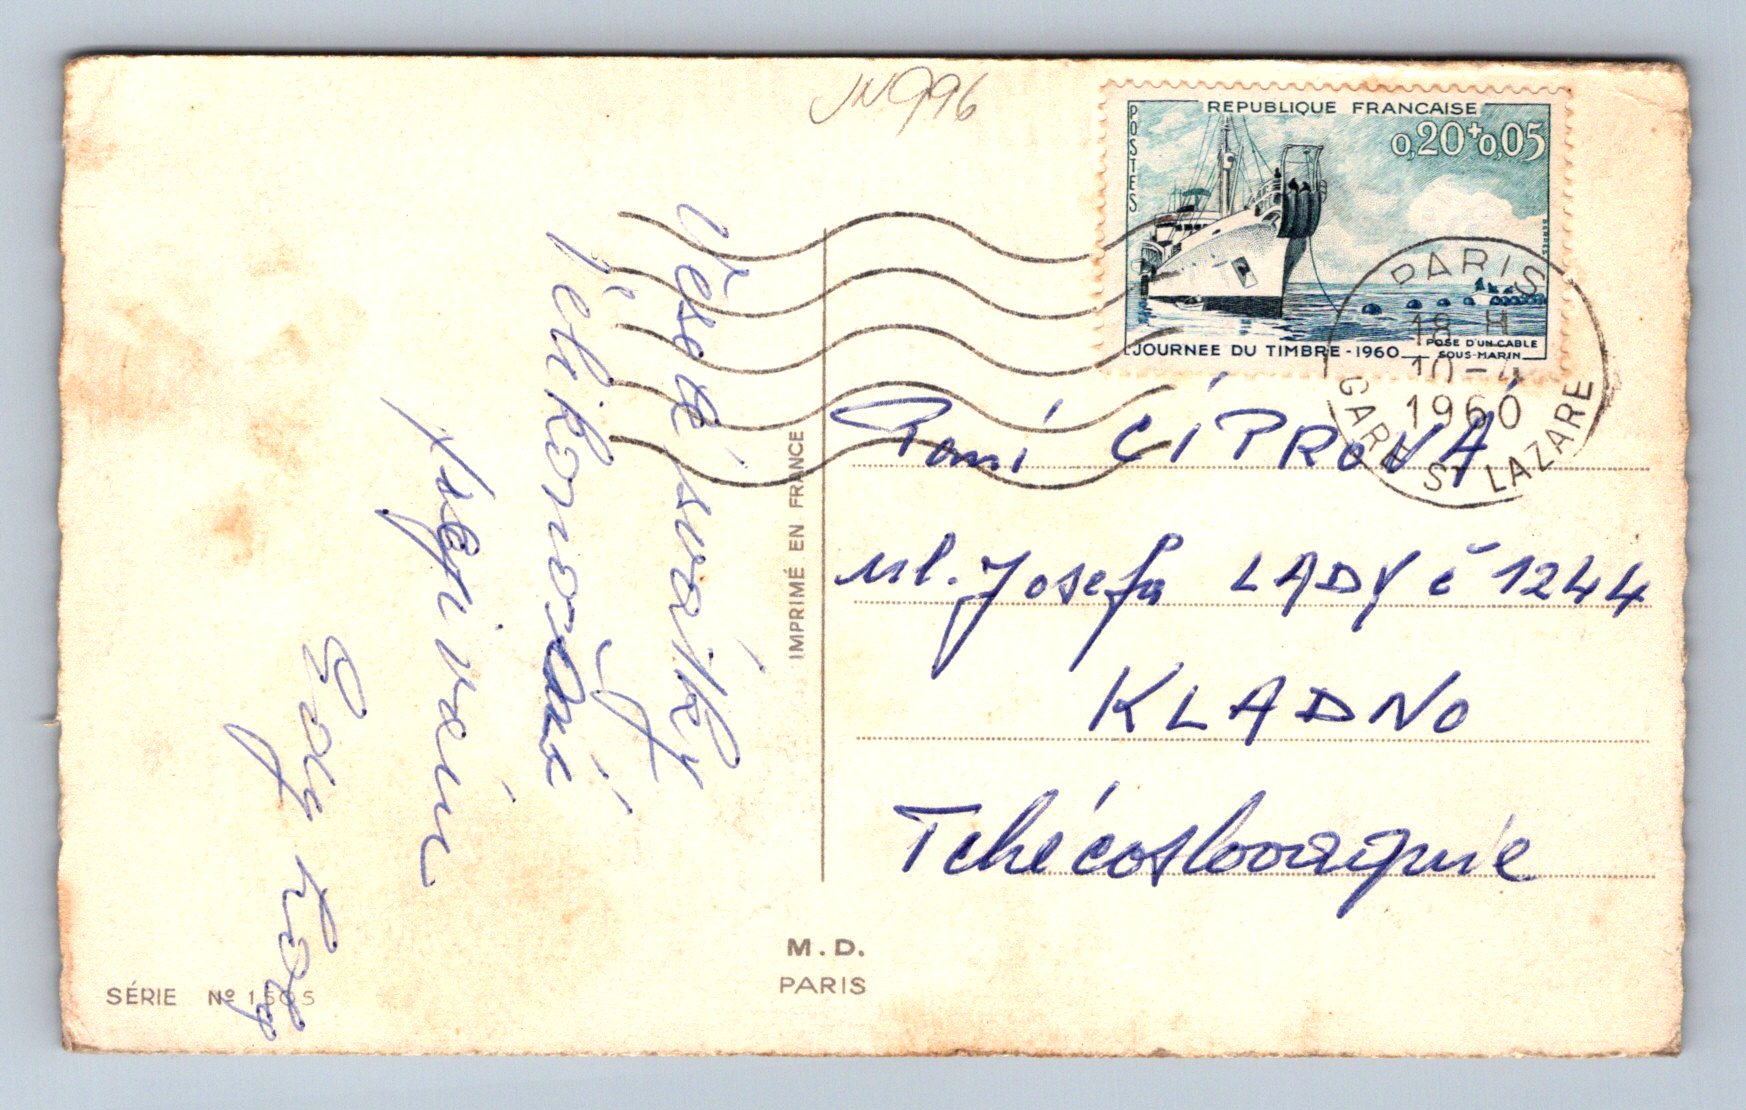 JN996
REPUBLIQUE FRANCAISE
POSTES
0,20+0,05
JOURNEE DU TIMBRE-1960
POSE D'UN CABLE
SOUS-MARIN
PARIS
18 H
10-4
1960
GARE ST LAZARE
Veselé svátky
velikonoční
Vám
IMPRIMÉ EN FRANCE
Paní CÍPROVÁ
ul. Josefa LADY č 1244
KLADNO
Tchécoslovaquie
M.D.
PARIS
SÉRIE Nº 1505